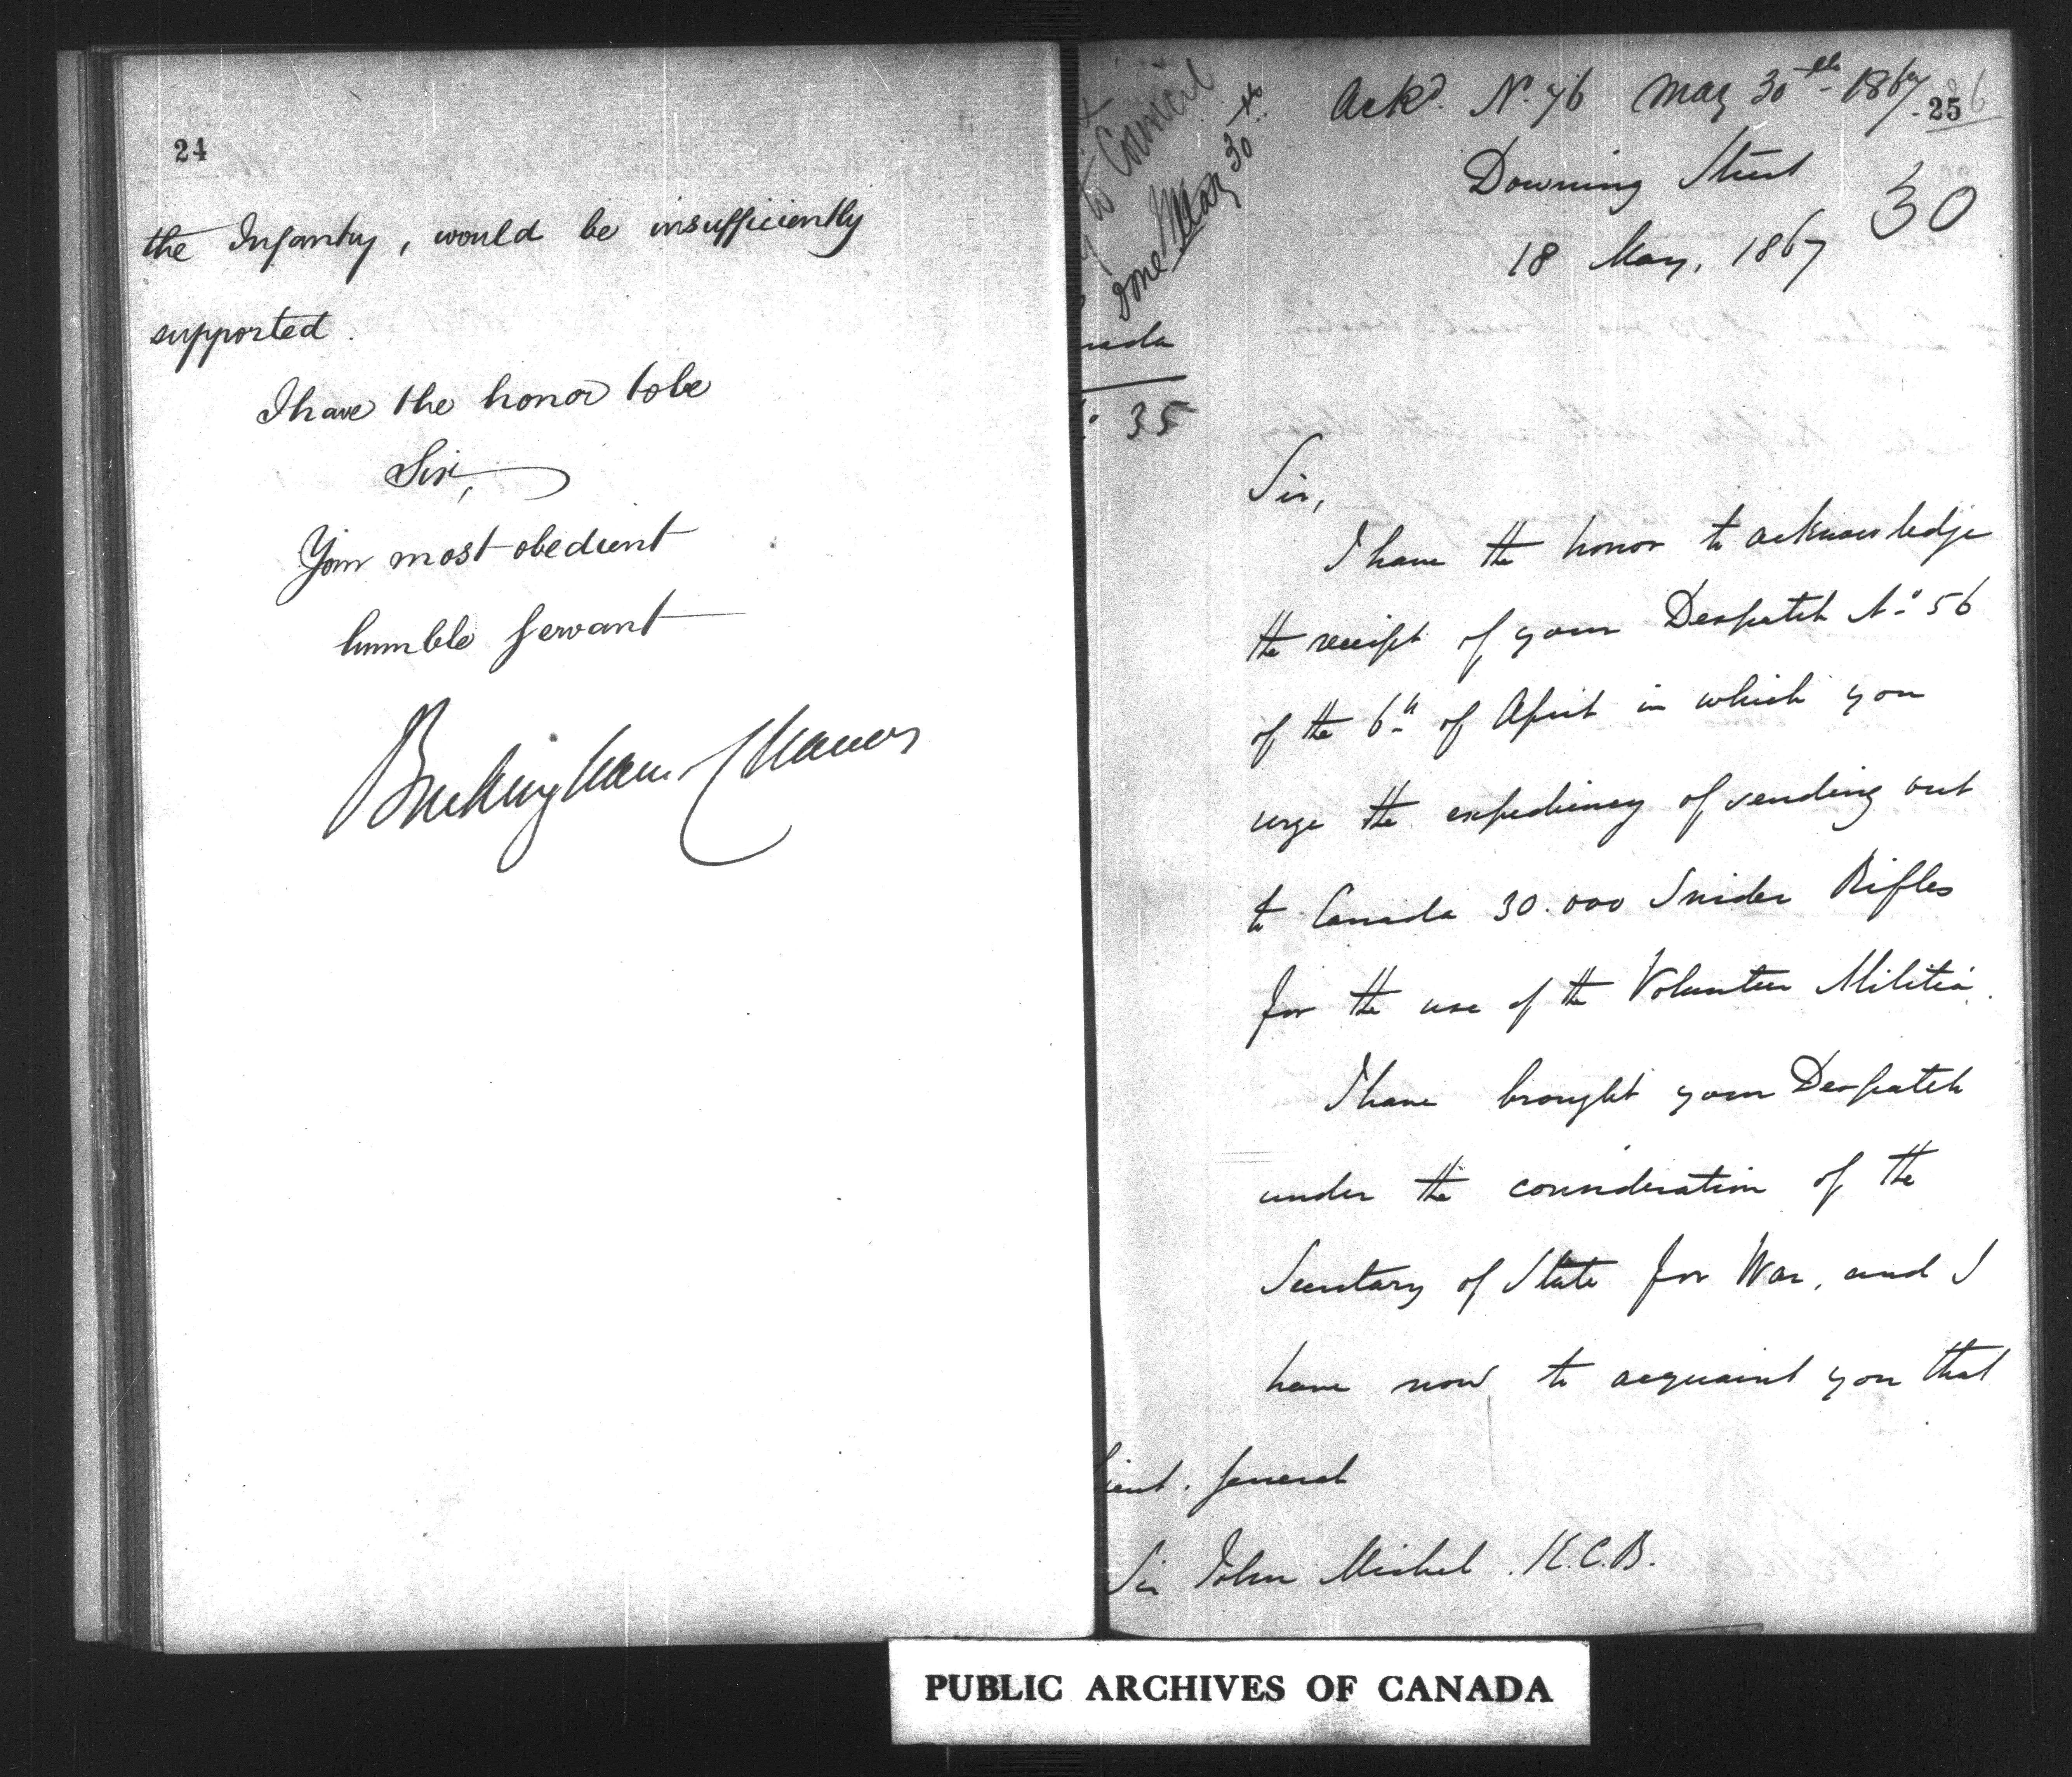 24
the Infantry, would be insufficiently
supported.
I have the honor to be
Sir,
Your most obedient
humble servant
Buckingham & Chandos
Ackd. No. 76 May 30th 1867
25
Downing Street
30
18 May, 1867
to Council
Done May 30th
nada
35
Sir,
I have the honor to acknowledge
the receipt of your Despatch No. 56
of the 6th of April in which you
urge the expediency of sending out
to Canada 30.000 Snider Rifles
for the use of the Volunteer Militia.
I have brought your Despatch
under the consideration of the
Secretary of State for War, and I
have now to acquaint you that
ieut. General
Sir John Michel. K.C.B.
PUBLIC ARCHIVES OF CANADA